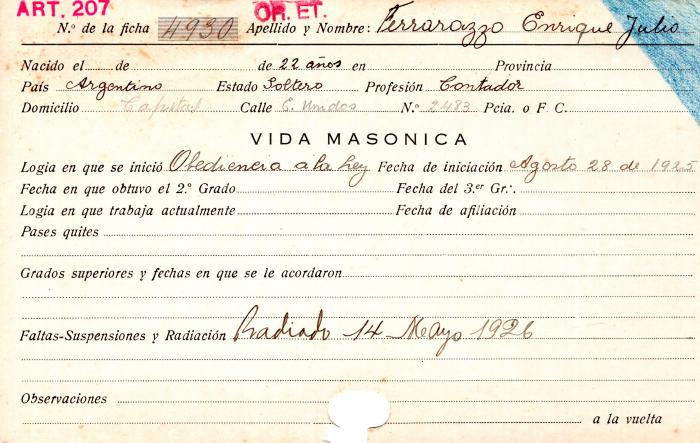 ART. 207 OR. ET.
N.º de la ficha 4930 Apellido y Nombre: Ferrarazzo Enrique Julio
Nacido el de de 22 años en Provincia
País Argentino Estado Soltero Profesión Contador
Domicilio Capital Calle E. Unidos N.º 2483 Pcia. o F. C.
VIDA MASONICA
Logia en que se inició Obediencia a la ley Fecha de iniciación Agosto 28 de 1925
Fecha en que obtuvo el 2.º Grado Fecha del 3.er Gr∴
Logia en que trabaja actualmente Fecha de afiliación
Pases quites
Grados superiores y fechas en que se le acordaron
Faltas-Suspensiones y Radiación Radiado 14 Mayo 1926
Observaciones
a la vuelta